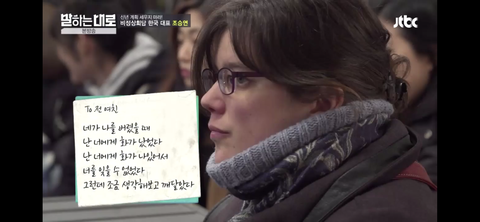 말하는대로
본방송
신년 계획 세우지 마라!
비정상회담 한국 대표 조승연
jtbc
To 전 여친
네가 나를 버렸을 때
난 너에게 화가 났었다
난 너에게 화가 나있어서
너를 잊을 수 없었다
그런데 조금 생각해보고 깨달았다